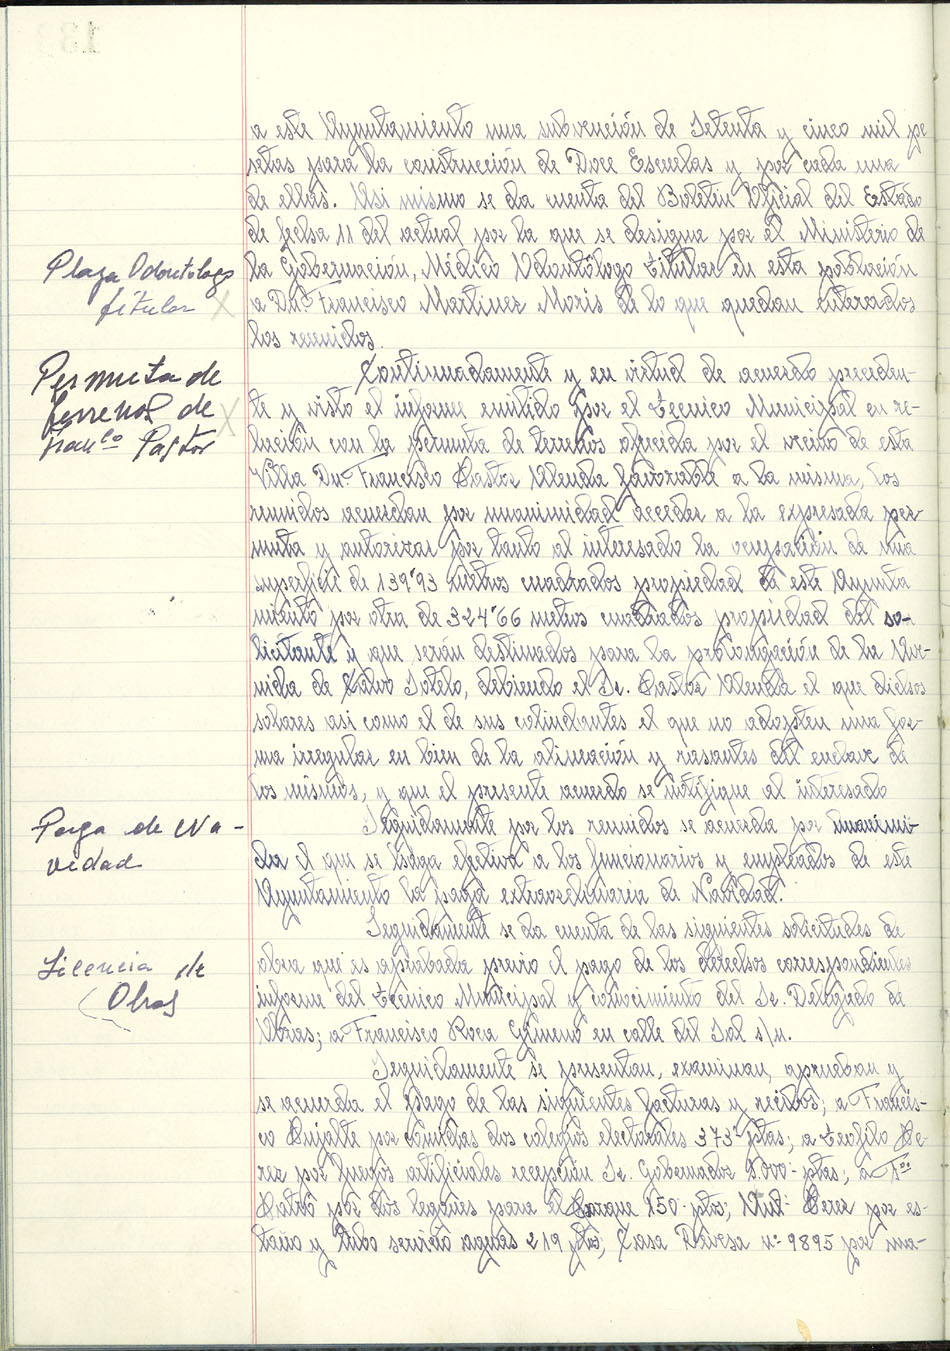 a este Ayuntamiento una subvención de Setenta y cinco mil pe
setas para la construcción de Doce Escuelas y por cada una
de ellas. Asi mismo se da cuenta del Boletín Oficial del Estado
de fecha 11 del actual por la que se designa por el Ministerio de
Plaza Odontologo
titular
la Gobernación, Médico Odontólogo titular en esta población
a Dn. Francisco Martinez Moris de lo que quedan enterados
los reunidos.
Permuta de
terrenos de
Franco Pastor
Continuadamente y en virtud de acuerdo preceden-
te y visto el informe emitido por el técnico Municipal en re-
lación con la permuta de terrenos ofrecida por el vecino de esta
Villa Dn. Francisco Pastor Allenda favorable a la misma, los
reunidos acuerdan por unanimidad acceder a la expresada per-
muta y autorizar por tanto al interesado la ocupación de una
superficie de 139'93 metros cuadrados propiedad de este Ayunta
miento por otra de 324'66 metros cuadrados propiedad del so-
licitante y que serán destinados para la prolongación de la Ave-
nida de Calvo Sotelo, debiendo el Sr. Pastor Allenda el que dichos
solares asi como el de sus colindantes el que no adopten una for-
ma irregular en bien de la alineación y rasantes del enclave de
los mismos, y que el presente acuerdo se notifique al interesado
Paga de Na-
vidad
Seguidamente por los reunidos se acuerda por unanimi-
da el que se haga efectiva a los funcionarios y empleados de este
Ayuntamiento la paga extraordinaria de Navidad.
Licencia de
Obras
Seguidamente se da cuenta de las siguientes solicitudes de
obra que es aprobada previo el pago de los derechos correspondientes
informe del técnico Municipal y conocimiento del Sr. Delegado de
Obras; a Francisco Roca Gimeno en calle del Sol s/n.
Seguidamente se presentan, examinan, aprueban y
se acuerda el pago de las siguientes facturas y recibos; a Francis-
co Grijalte por comidas dos colegios electorales 373 ptas; a teofilo Pe-
rez por fuegos artificiales recepción Sr. Gobernador 5.000- ptas; a Fco
Calvo por dos legones para el Parque 150- ptas; Vicente Perez por es-
taño y tubo servicio aguas 219 ptas; Casa Devesa nº 9895 por ma-